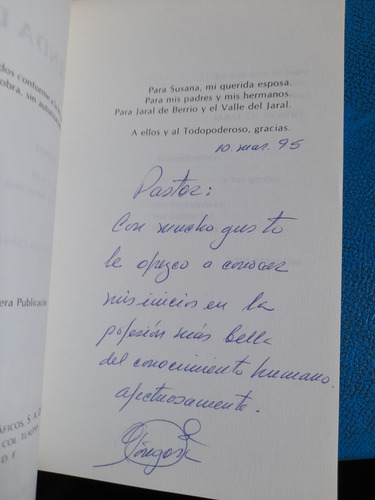 Para Susana, mi querida esposa.
Para mis padres y mis hermanos.
Para Jaral de Berrio y el Valle del Jaral.
A ellos y al Todopoderoso, gracias.
10. mar. 95
Pastor:
Con mucho gusto
le ofrezco a conocer
mis inicios en la
profesión más bella
del conocimiento humano.
afectuosamente.
NDA D
dos conforme a
obra, sin auto
era Publicación
ÁFICOS, S. A. D
COL. TLACO
D. F.